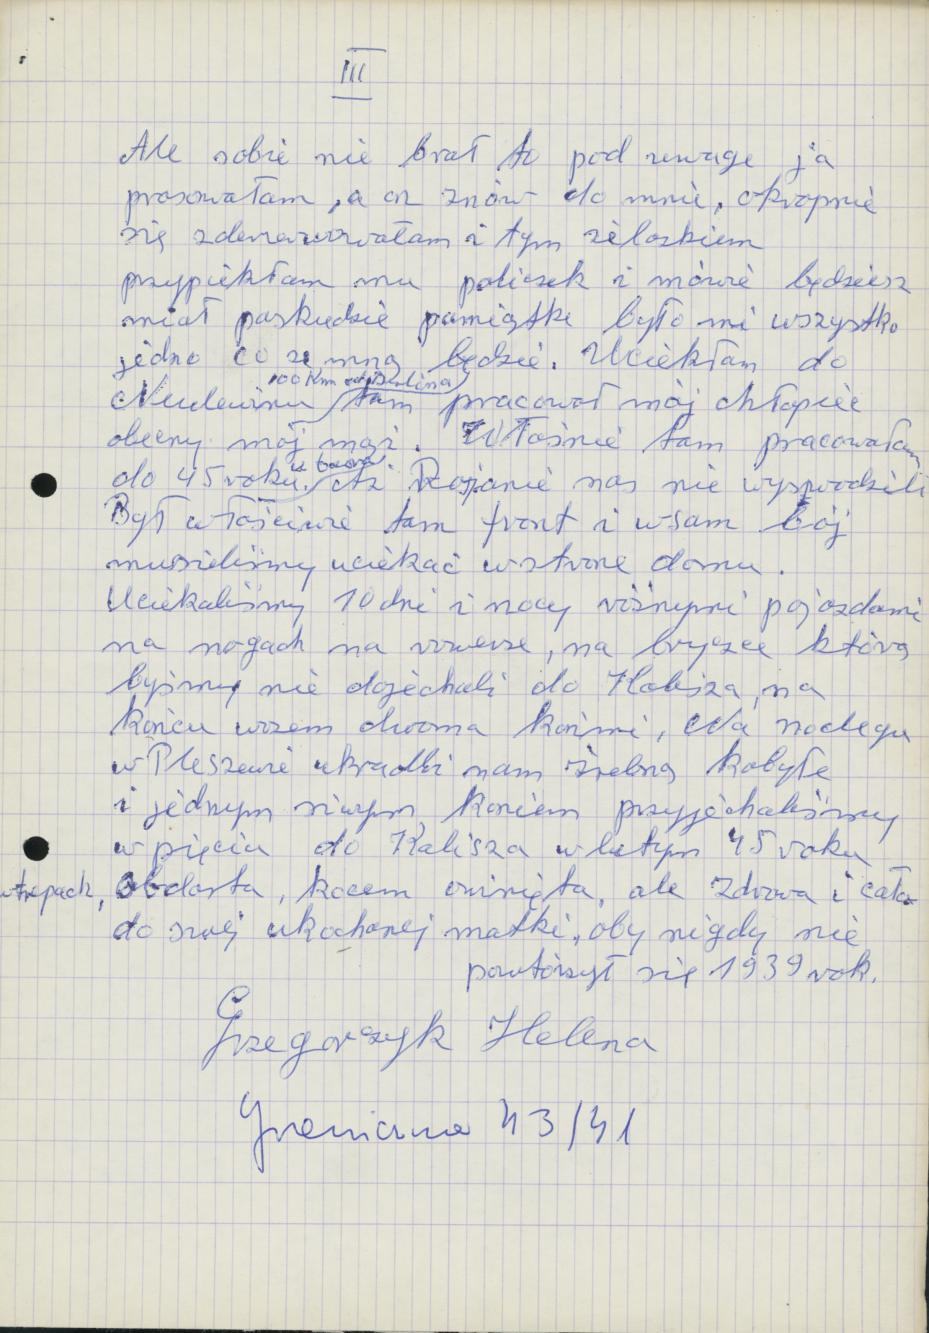 III
Ale sobie nie brał to pod uwagę ja
prasowałam, a on znów do mnie, okropnie
się zdenerwowałam i tym żelazkiem
przypiekłam mu policzek i mówię będziesz
miał paskudzie pamiątke było mi wszystko
jedno co ze mną będzie. Uciekłam do
100 Km od Berlina
tam pracował mój chłopiec
obecny mój mąż. Właśnie tam pracowałam
do 45 roku. u baora Aż Rosjanie nas nie wyswodzili
Był właściwie tam front i w sam bój
musieliśmy uciekać w strone domu.
Uciekaliśmy 10 dni i nocy różnymi pojazdami
na nogach na rowerze, na bryczce którą
byśmy nie dojechali do Kalisza, na
końcu wozem dwoma końmi, Na noclegu
w Pleszewie ukradli nam źrebną kobyłe
i jednym siwym koniem przyjechaliśmy
w pięciu do Kalisza w lutym 45 roku
w trepach, obdarta, kocem owinięta, ale zdrowa i cała
do swej ukochanej matki, oby nigdy nie
powtórzył się 1939 rok.
Grzegorczyk Helena
43/41